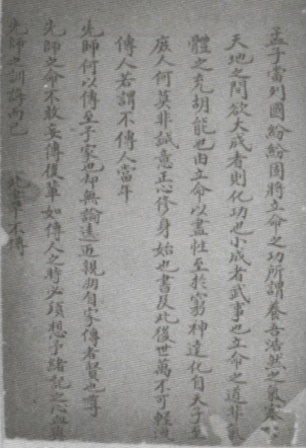 孟子當列國紛紛固將立命之功所謂養吾浩然之氣塞
天地之間欲大成者則化功也小成者武事也立命之道非氣
體之充胡能也由立命以盡性至於窮神達化自天子至
庶人何莫非誠意正心修身始也書及此後世萬不可輕
傳人若謂不傳人當年
先師何以傳至予家也却無論遠近親朋自家傳者賢也尊
先師之命不敢妄傳後輩如傳人之時必須想予緒記之心血與
先師之訓誨而已 此章不傳